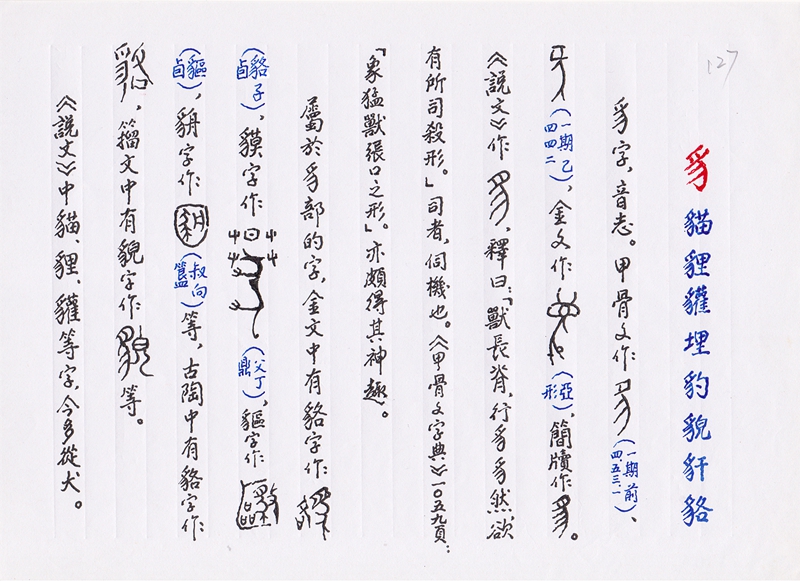 127
豸 貓貍貛埋豹貌豻貉
豸字，音志。甲骨文作（一期前四.五三.一）、
（一期乙四四二），金文作（亞形），簡牘作。
《說文》作，釋曰：「獸長脊，行豸豸然欲
有所司殺形。」司者，伺機也。《甲骨文字典》一〇五九頁：
「象猛獸張口之形」。亦頗得其神趣。
屬於豸部的字，金文中有貉字作
（貉子卣），貘字作（父丁鼎），貙字作
（貙卣），貈字作（叔向簋）等，古陶中有貉字作
，籀文中有貌字作等。
《說文》中貓、貍、貛等字，今多從犬。